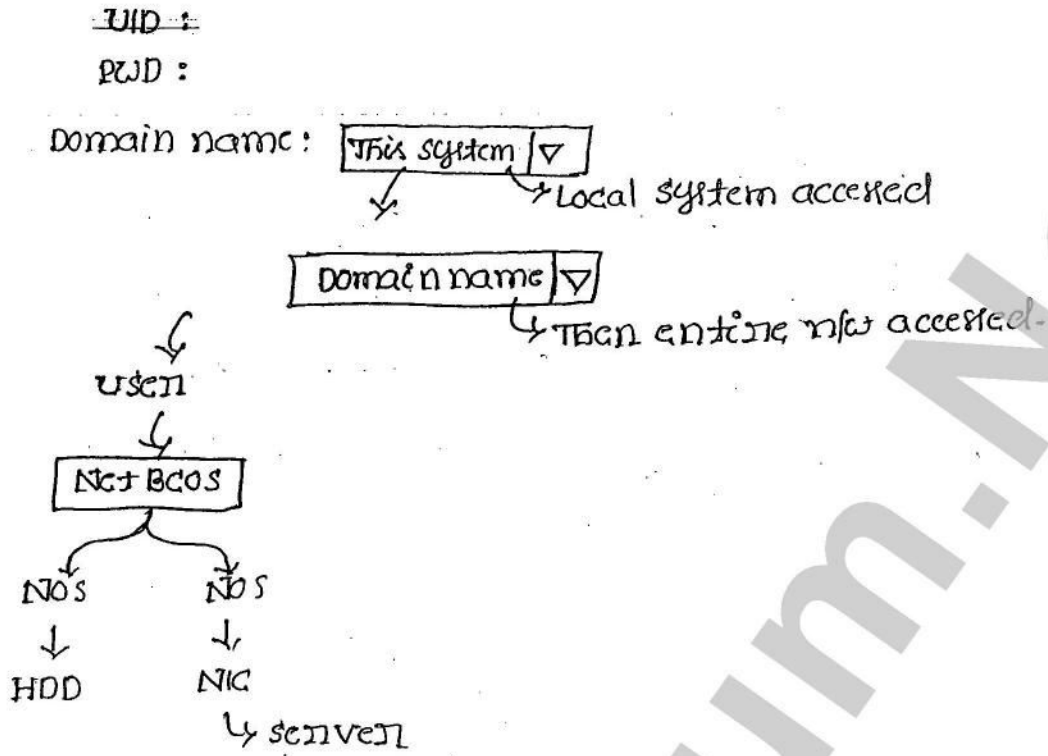 UID :
PWD :
Domain name: This system
Local system accessed
Domain name
Then entire n/w accessed.
user
Net BIOS
NOS NOS
HDD NIC
server
um.N